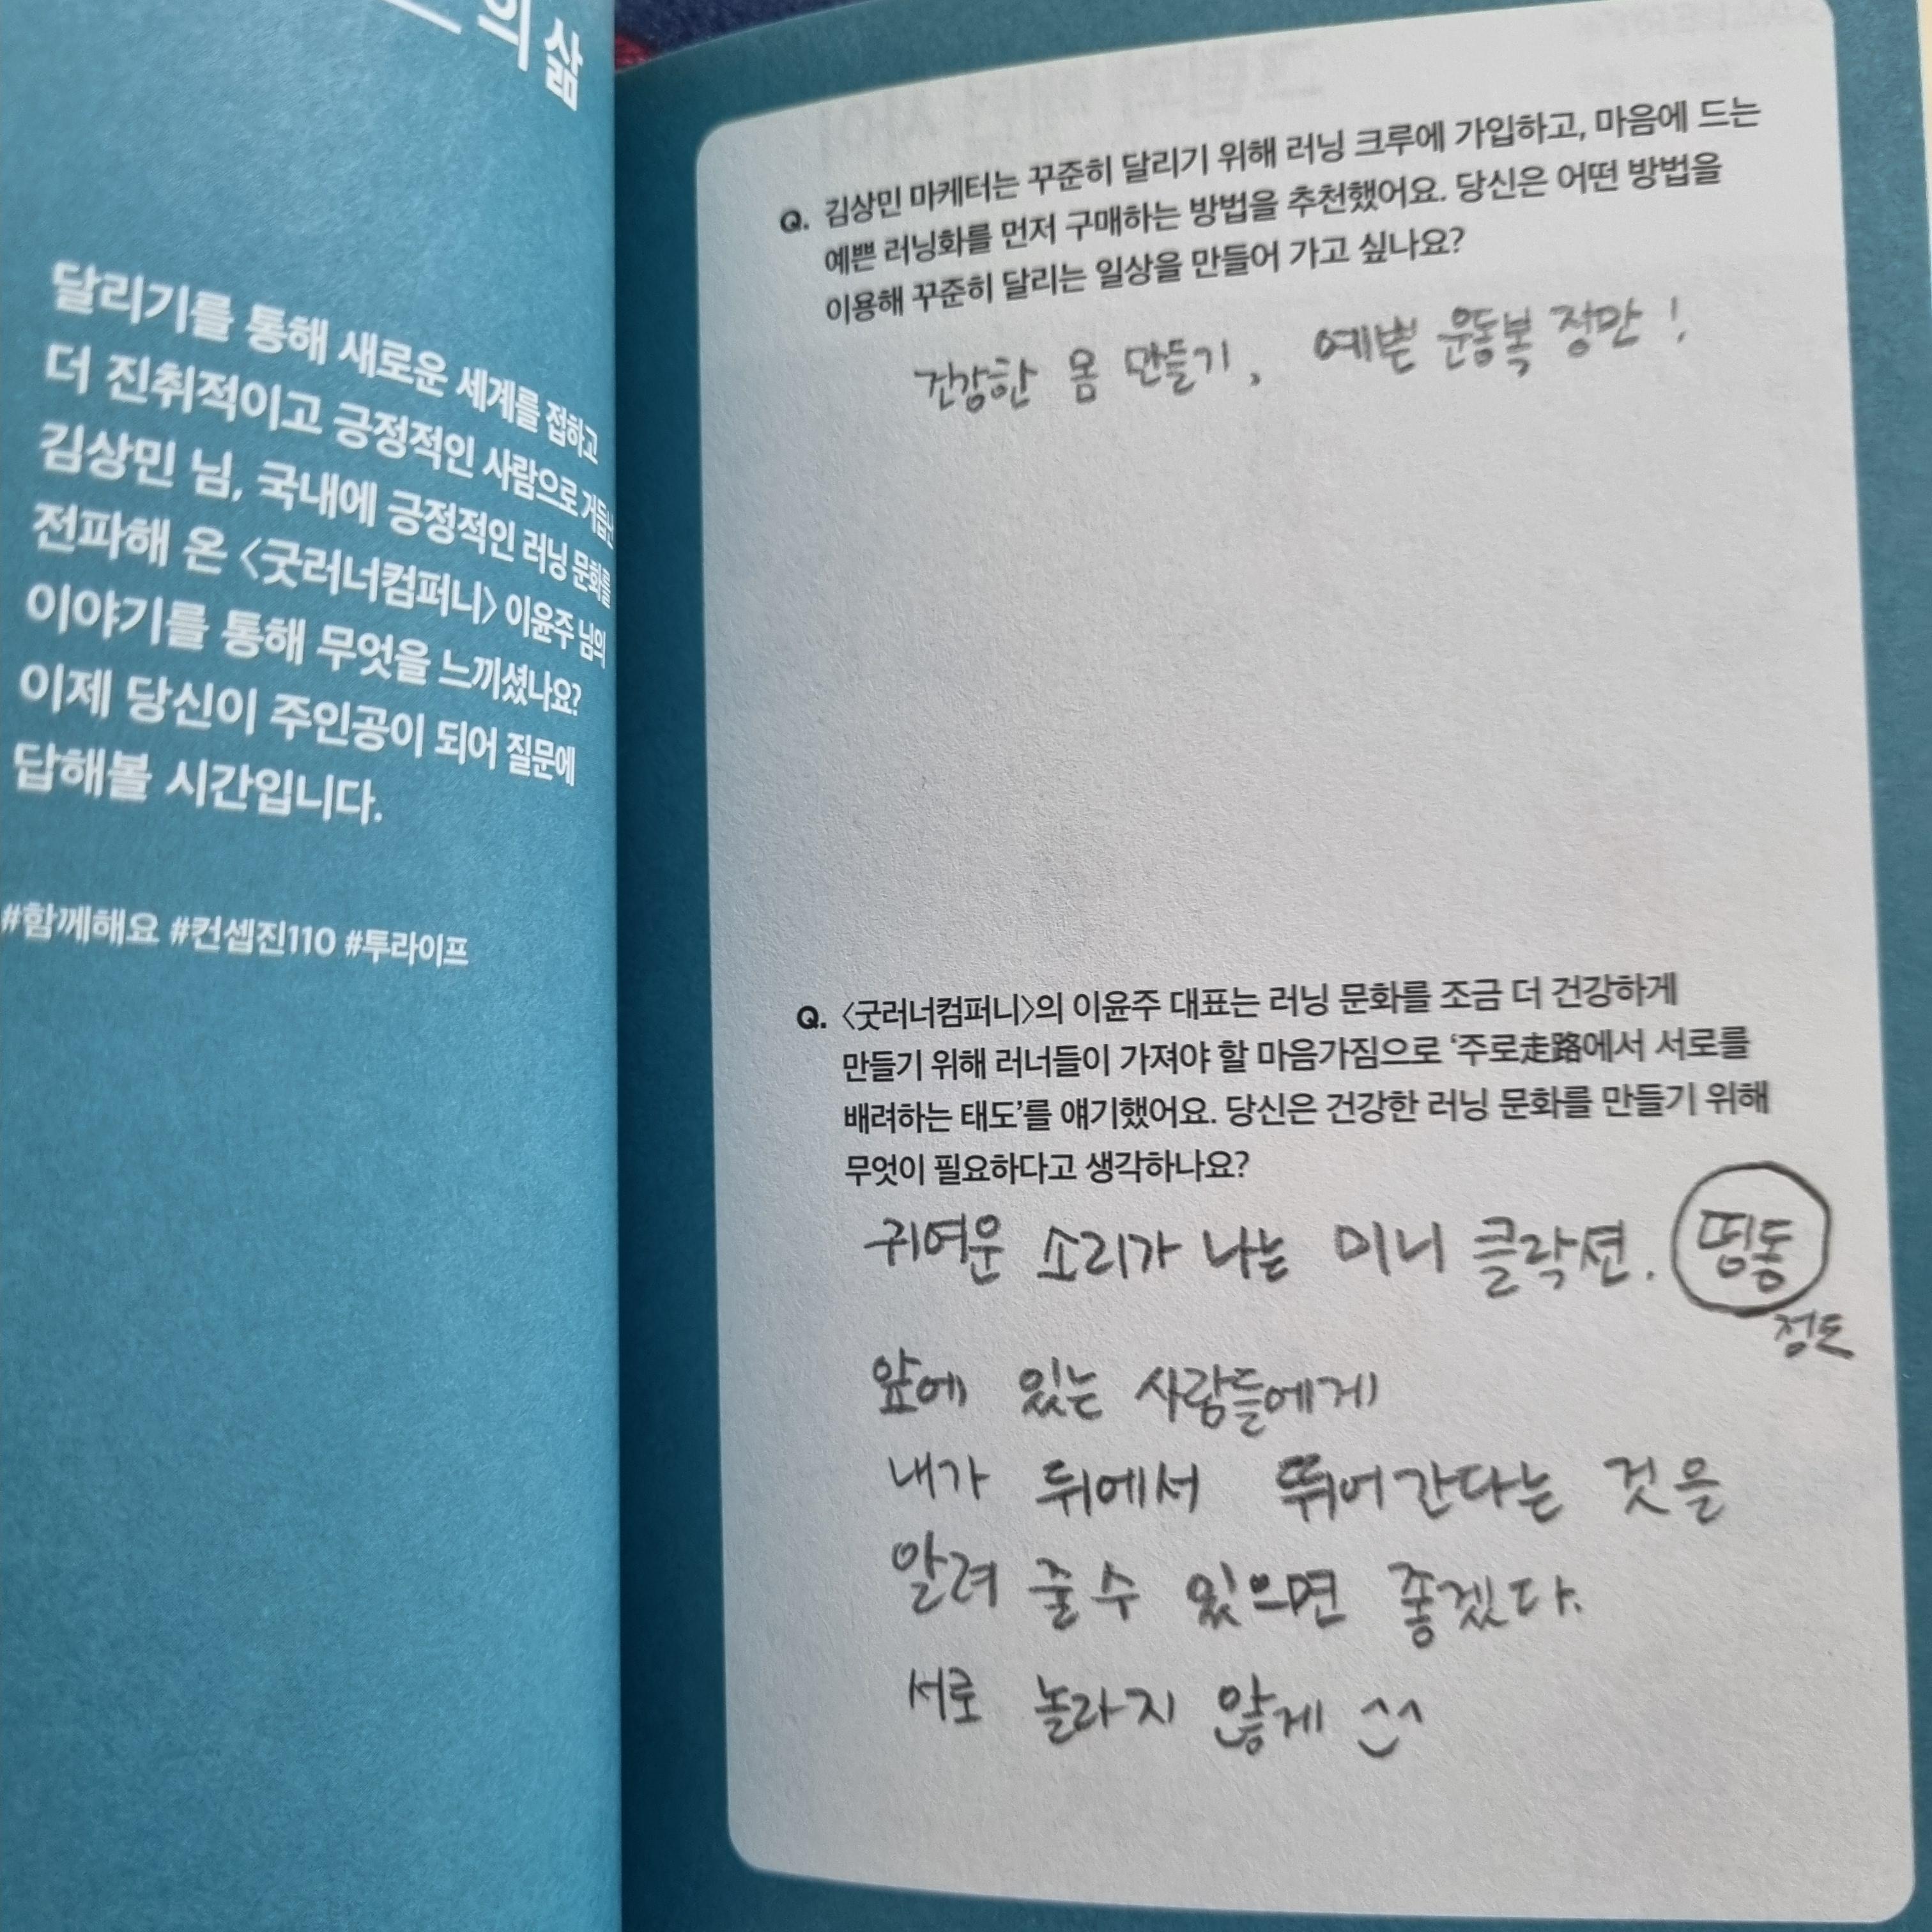 의 삶
달리기를 통해 새로운 세계를 접하고
더 진취적이고 긍정적인 사람으로 거듭난
김상민 님, 국내에 긍정적인 러닝 문화를
전파해 온 〈굿러너컴퍼니〉 이윤주 님의
이야기를 통해 무엇을 느끼셨나요?
이제 당신이 주인공이 되어 질문에
답해볼 시간입니다.
#함께해요 #컨셉진110 #투라이프
Q. 김상민 마케터는 꾸준히 달리기 위해 러닝 크루에 가입하고, 마음에 드는
예쁜 러닝화를 먼저 구매하는 방법을 추천했어요. 당신은 어떤 방법을
이용해 꾸준히 달리는 일상을 만들어 가고 싶나요?
건강한 몸 만들기, 예쁜 운동복 장만!
Q. 〈굿러너컴퍼니〉의 이윤주 대표는 러닝 문화를 조금 더 건강하게
만들기 위해 러너들이 가져야 할 마음가짐으로 ‘주로走路에서 서로를
배려하는 태도’를 얘기했어요. 당신은 건강한 러닝 문화를 만들기 위해
무엇이 필요하다고 생각하나요?
귀여운 소리가 나는 미니 클락션. 띵동
정도
앞에 있는 사람들에게
내가 뒤에서 뛰어간다는 것을
알려 줄 수 있으면 좋겠다.
서로 놀라지 않게 ^^